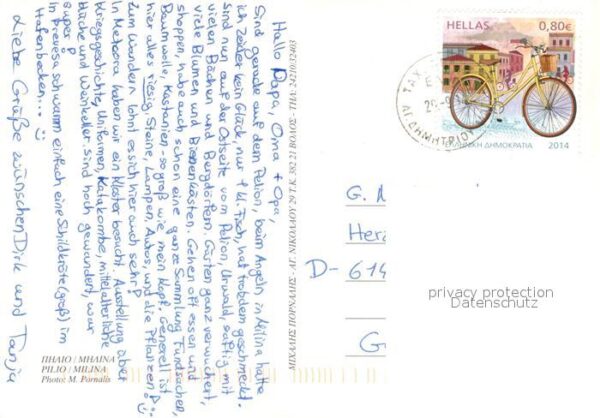 Hallo Papa, Oma + Opa,
Sind gerade auf dem Pelion, beim Angeln, in Milina hatte
ich leider kein Glück, nur 1 kl. Fisch, hat trotzdem geschmeckt.
Sind nur auf der Ostseite vom Pelion, Urwald, saftig mit
vielen Bächen und Bergdörfern. Gärten ganz verwuchert,
viele Blumen und Bienenkästen. Gehen oft essen und
shoppen, habe auch schon eine ganze Sammlung Fundsachen,
Baumwolle, Kastanien, so groß wie mein Kopf. Generell ist
hier alles riesig, Steine, Lampen, Autos, und die Pflanzen
Zum Wandern lohnt es sich hier auch sehr!
In Meteora haben wir ein Kloster besucht. Ausstellung über
Kriegsgeschichte, Uniformen, Katakombe, mittelalterliche
Küche und Weinkeller sind hoch gewandert, war
super!
In Prevesa schwamm einfach eine Schildkröte (groß) im
Hafenbecken... :)
Liebe Grüße wünschen Dirk und Tanja
ΠΗΛΙΟ / ΜΗΛΙΝΑ
PILIO / MILINA
Photo: M. Pornalis
HELLAS
0,80€
ΕΛΛΗΝΙΚΗ ΔΗΜΟΚΡΑΤΙΑ 2014
ΤΑΧ
ΑΓ. ΔΗΜΗΤΡΙΟΥ
G.
Hera
D- 614
G
privacy protection
Datenschutz